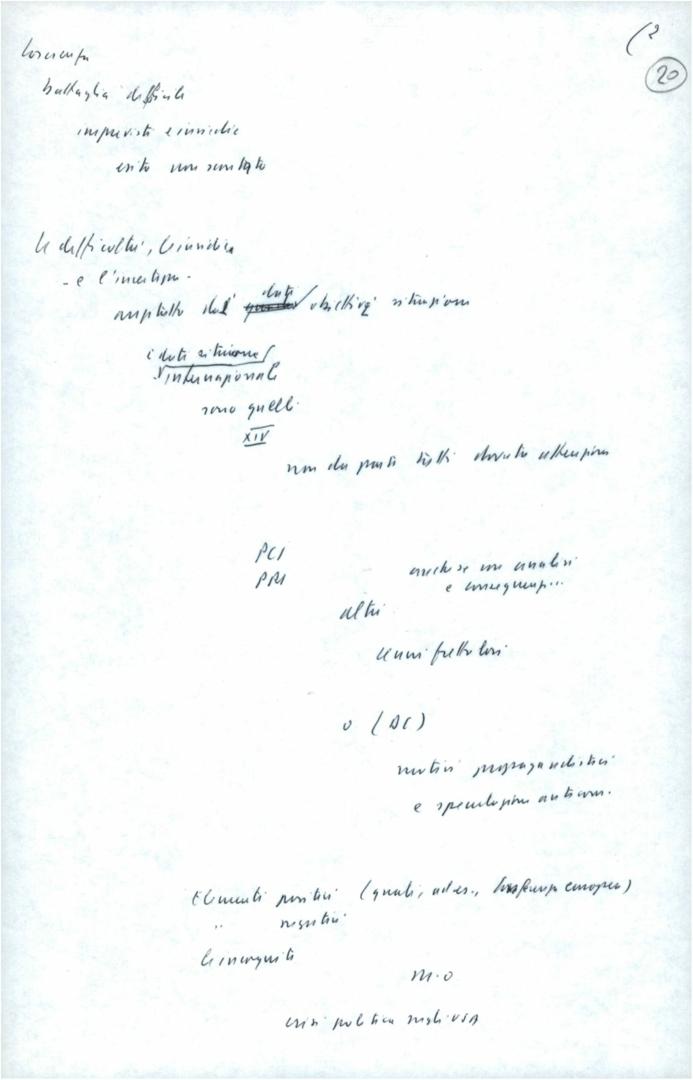 (2
20
Coscienza
battaglia difficile
imprevisti e insidie
esito non scontato
le difficoltà, le insidie
- e l'incertezza -
anzitutto dai dati obiettivi situazione
i dati situazione
internazionale
sono quelli
XIV
non da parte tutti dovuta attenzione
PCI
PRI
anche se con analisi
e conseguenz...
altri
cenni frettolosi
o (DC)
motivi propagandistici
e speculazione anticom.
Elementi positivi (quali, ad es., Conferenza europea)
" negativi
le incognite
M.O
crisi politica negli USA